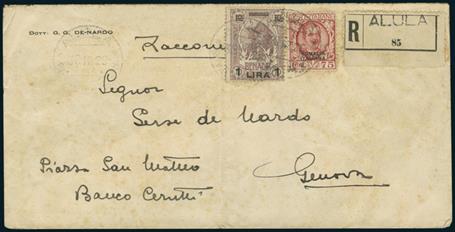 DOTT. G. G. DE-NARDO
Raccom
R ALULA
85
1 LIRA 1
75
Signor
Serse de Nardo
Piazza San Matteo
Banco Cerutti
Genova